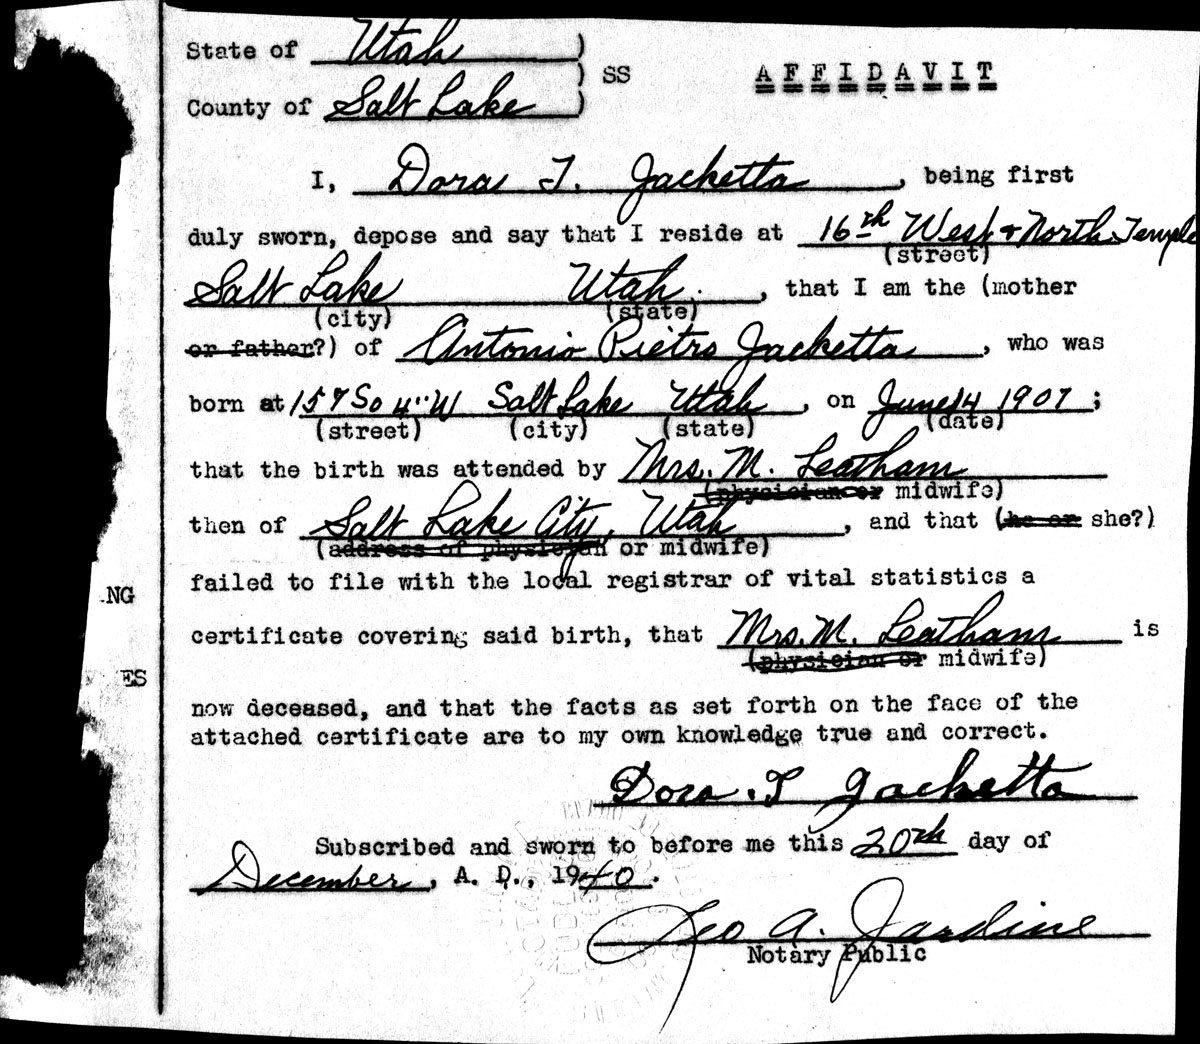 State of Utah )
) SS AFFIDAVIT
County of Salt Lake )
I, Dora T. Jacketta, being first
duly sworn, depose and say that I reside at 16th West & North Temple
(street)
Salt Lake Utah., that I am the (mother
(city) (state)
or father?) of Antonio Pietro Jacketta, who was
born at 157 So 4" W Salt Lake Utah, on June 14 1907;
(street) (city) (state) (date)
that the birth was attended by Mrs. M. Leatham
(physician or midwife)
then of Salt Lake City, Utah, and that (he or she?)
(address of physician or midwife)
failed to file with the local registrar of vital statistics a
NG
certificate covering said birth, that Mrs. M. Leatham is
(physician or midwife)
ES
now deceased, and that the facts as set forth on the face of the
attached certificate are to my own knowledge true and correct.
Dora . T Jacketta
Subscribed and sworn to before me this 20th day of
December, A. D., 1940.
Geo A. Jardine
Notary Public